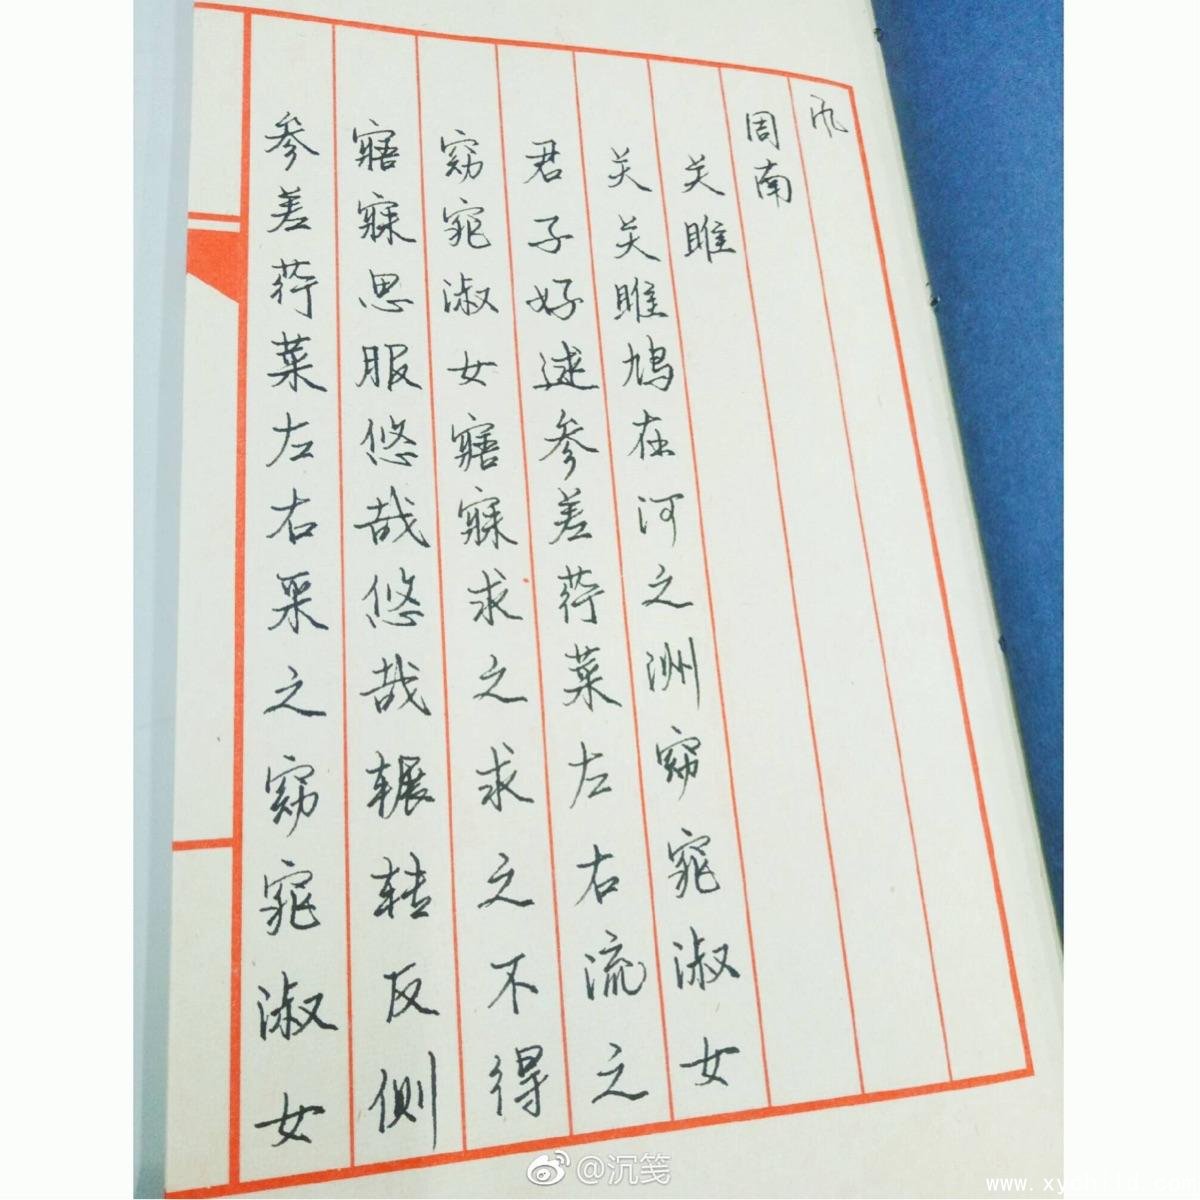 风
周南
关雎
关关雎鸠在河之洲窈窕淑女
君子好逑参差荇菜左右流之
窈窕淑女寤寐求之求之不得
寤寐思服悠哉悠哉辗转反侧
参差荇菜左右采之窈窕淑女
@沉笺